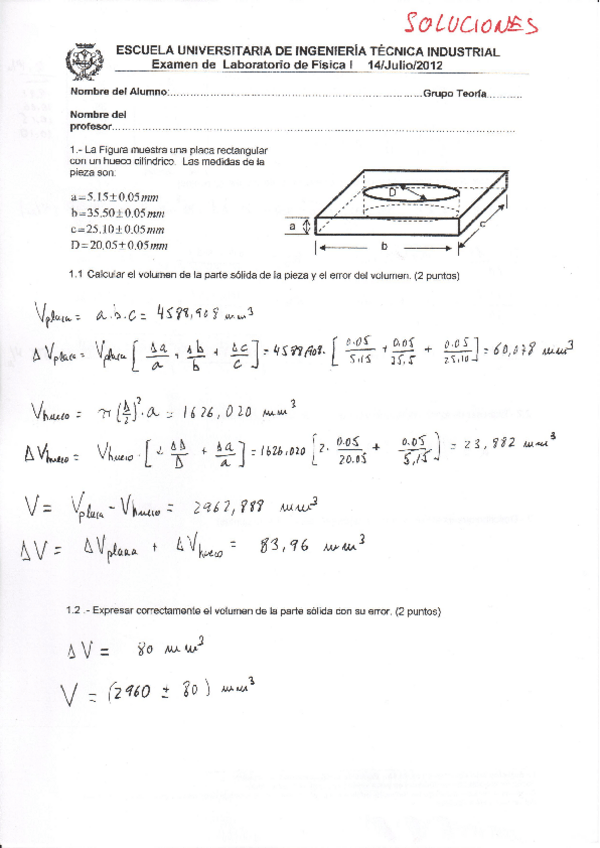 SOLUCIONES
ESCUELA UNIVERSITARIA DE INGENIERÍA TÉCNICA INDUSTRIAL
Examen de Laboratorio de Física I 14/Julio/2012
Nombre del Alumno:..........Grupo Teoría..........
Nombre del
profesor..........
1.- La Figura muestra una placa rectangular
con un hueco cilíndrico. Las medidas de la
pieza son:
a = 5.15 ± 0.05 mm
b = 35.50 ± 0.05 mm
c = 25.10 ± 0.05 mm
D = 20,05 ± 0,05 mm
D
a
b
c
1.1 Calcular el volumen de la parte sólida de la pieza y el error del volumen. (2 puntos)
Vplaca = a.b.c = 4588,908 mm³
ΔVplaca = Vplaca [Δa/a + Δb/b + Δc/c] = 4588,908. [0.05/5,15 + 0,05/25.5 + 0.05/25.10] = 60,078 mm³
Vhueco = π(D/2)²·a = 1626,020 mm³
ΔVhueco = Vhueco · [2 ΔD/D + Δa/a] = 1626.020 [2. 0.05/20.05 + 0.05/5,15] = 23,882 mm³
V = Vplaca - Vhueco = 2962,888 mm³
ΔV = ΔVplaca + ΔVhueco = 83,96 mm³
1.2 .- Expresar correctamente el volumen de la parte sólida con su error. (2 puntos)
ΔV = 80 mm³
V = (2960 ± 80) mm³